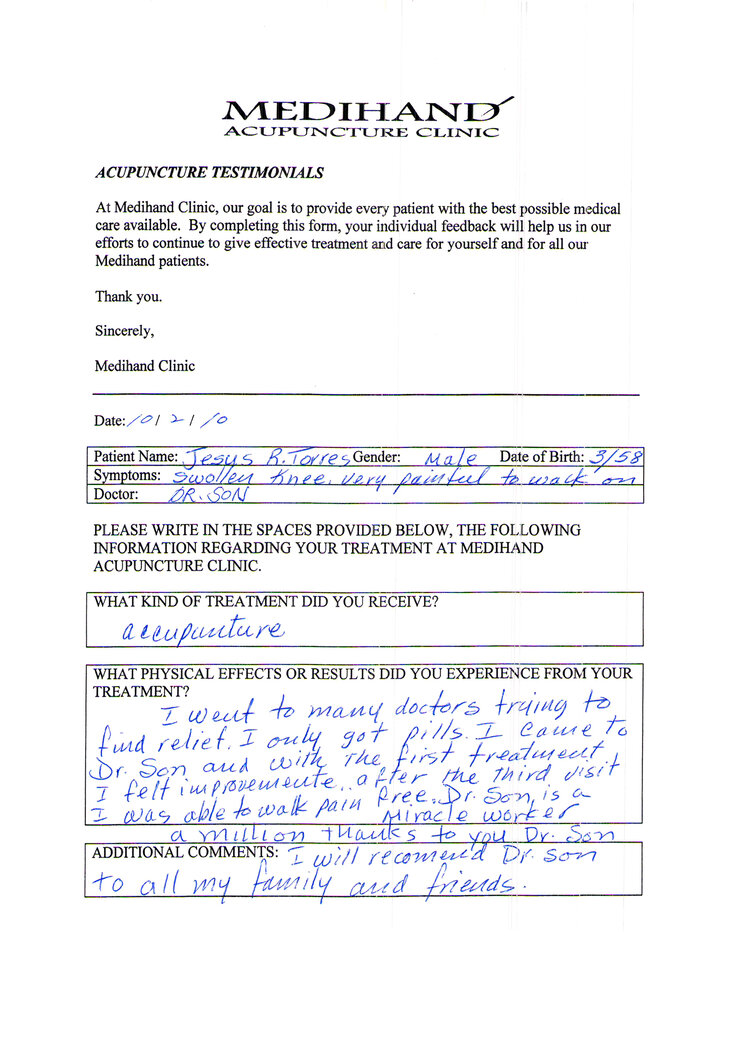 MEDIHAND
ACUPUNCTURE CLINIC
ACUPUNCTURE TESTIMONIALS
At Medihand Clinic, our goal is to provide every patient with the best possible medical
care available. By completing this form, your individual feedback will help us in our
efforts to continue to give effective treatment and care for yourself and for all our
Medihand patients.
Thank you.
Sincerely,
Medihand Clinic
Date: 10/ 2 / 10
Patient Name: Jesus R. Torres Gender: Male Date of Birth: 3/58
Symptoms: Swollen Knee, very painful to walk on
Doctor: DR. SON
PLEASE WRITE IN THE SPACES PROVIDED BELOW, THE FOLLOWING
INFORMATION REGARDING YOUR TREATMENT AT MEDIHAND
ACUPUNCTURE CLINIC.
WHAT KIND OF TREATMENT DID YOU RECEIVE?
accupunture
WHAT PHYSICAL EFFECTS OR RESULTS DID YOU EXPERIENCE FROM YOUR
TREATMENT?
I went to many doctors trying to
find relief. I only got pills. I came to
Dr. Son and with the first treatment
I felt improvemente, after the third visit
I was able to walk pain free. Dr. Son is a
Miracle worker
a million thanks to you Dr. Son
ADDITIONAL COMMENTS: I will recomend Dr. Son
to all my family and friends.